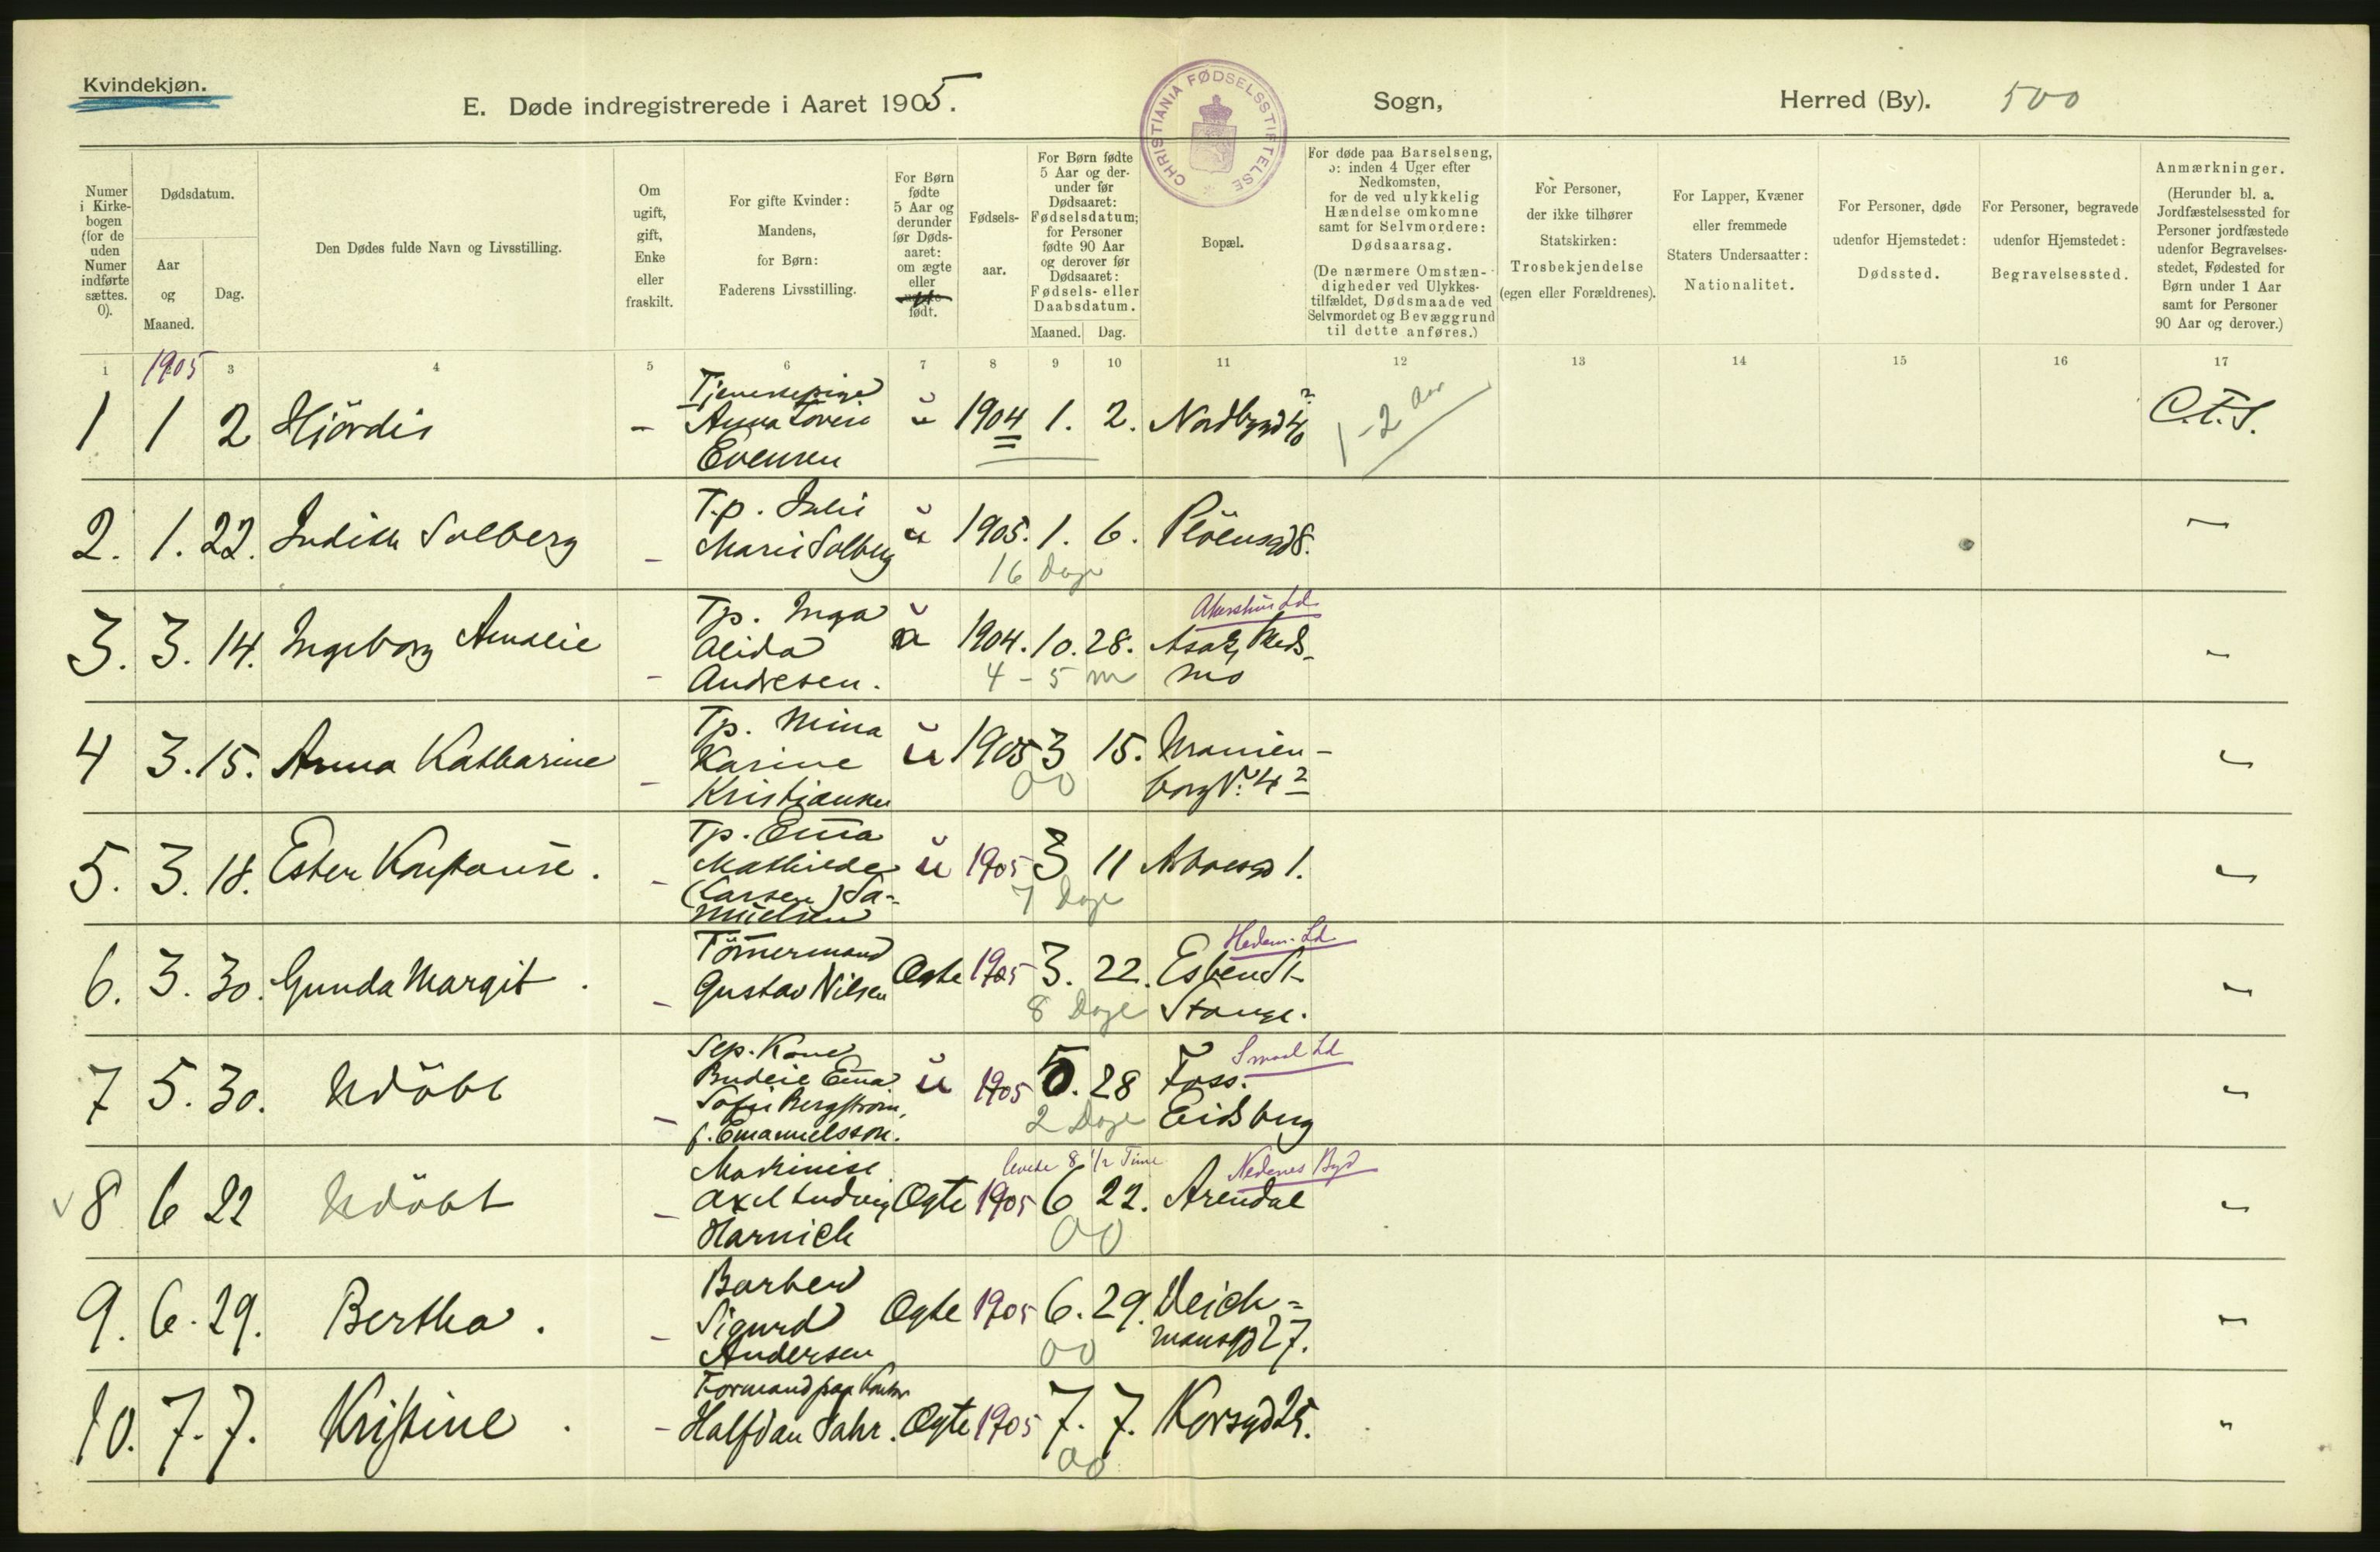 Kvindekjøn.
E. Døde indregistrerede i Aaret 1905.
CHRISTIANIA FØDSELSSTIFTELSE
Sogn,
Herred (By).
500
Numer i Kirke-bogen (for de uden Numer indførte sættes. 0).
Dødsdatum.
Aar og Maaned.
Dag.
Den Dødes fulde Navn og Livsstilling.
Om ugift, gift, Enke eller fraskilt.
For gifte Kvinder: Mandens, for Børn: Faderens Livsstilling.
For Børn fødte 5 Aar og derunder før Døds-aaret: om ægte eller født.
Fødsels-aar.
For Børn fødte 5 Aar og der-under før Dødsaaret: Fødselsdatum; for Personer fødte 90 Aar og derover før Dødsaaret: Fødsels- eller Daabsdatum.
Maaned. Dag.
Bopæl.
For døde paa Barselseng, ɔ: inden 4 Uger efter Nedkomsten, for de ved ulykkelig Hændelse omkomne samt for Selvmordere: Dødsaarsag.
(De nærmere Omstæn-digheder ved Ulykkes-tilfældet, Dødsmaade ved Selvmordet og Bevæggrund til dette anføres.)
For Personer, der ikke tilhører Statskirken: Trosbekjendelse (egen eller Forældrenes).
For Lapper, Kvæner eller fremmede Staters Undersaatter: Nationalitet.
For Personer, døde udenfor Hjemstedet: Dødssted.
For Personer, begravede udenfor Hjemstedet: Begravelsessted.
Anmærkninger.
(Herunder bl. a. Jordfæstelsessted for Personer jordfæstede udenfor Begravelses-stedet, Fødested for Børn under 1 Aar samt for Personer 90 Aar og derover.)
1 1905 3 4 5 6 7 8 9 10 11 12 13 14 15 16 17
1 1 2 Hjördis - Tjenestepige
Anna Lovise
Evensen
ŭ 1904 1. 2. Nordbygd 40 2
1-2 Aar
C.F.S.
2. 1. 22. Judith Solberg - T.p. Julie
Marie Solberg
ŭ 1905. 1. 6. Plöensgd 8. -
16 Dage
3. 3. 14. Ingeborg Amalie - Tp. Inga
Alida
Andresen.
ŭ 1904. 10. 28.
4 - 5 m
Akershus Ld.
Asak, Skeds-
mo
4 3. 15. Anna Katharine - Tp. Mina
Karine
Kristiansen
ŭ 1905 3 15. Uranien-
borgV. 4 2
00
5. 3. 18. Ester Konstanse. - Tp. Em̄a
Mathilde
(Larsen) Sa-
muelsen
ŭ 1905 3 11
7 Dage
1.
6. 3. 30. Gunda Margit. - Töm̄ermand
Gustav Nilsen
Ægte 1905 3. 22.
8 Dage
Hedem. Ld
Stange.
7 5. 30. Udöbt - Sep. Kone
Em̄a
Sofie Bergström,
f. Emanuelsson.
ŭ 1905 5. 28
2 Dage
Smaal Ld
Foss.
Eidsberg
8 6 22 Udöbt - Maskinist
Axel Ludvig
Harnich
Ægte 1905 6 22.
levede 8 1/2 Time
00
Nedenes Byd
Arendal
9. 6. 29. Bertha. - Barber
Sigurd
Andersen
Ægte 1905 6. 29.
00
Deich-
mansgd 27.
10. 7. 7. Kristine. - Formand paa Kontor
Halfdan Sahr.
Ægte 1905 7. 7. Korsgd 25. "
00